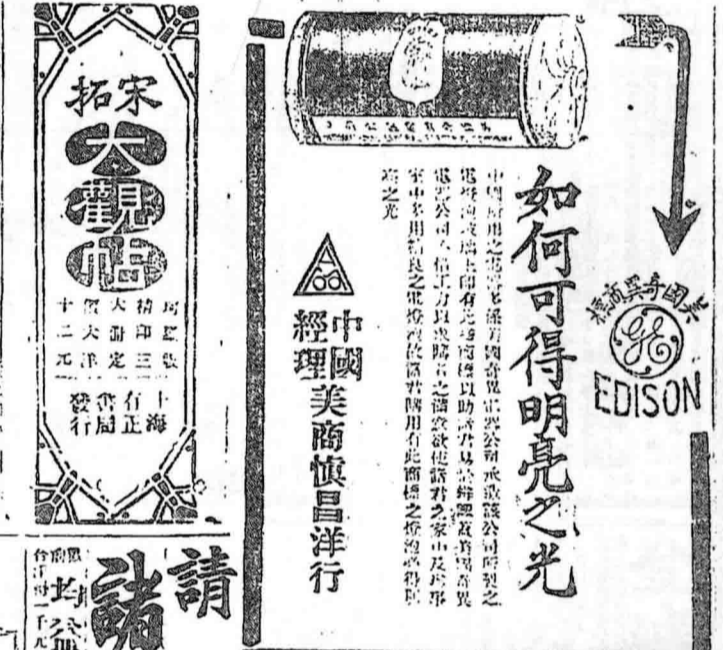 美國奇異商標
GE
EDISON
如何可得明亮之光
中國所用之電燈多係美國奇異電器公司承造該公司所製之
電燈泡玻璃上印有此種商標以助諸君易於辨認蓋美國奇異
電器公司不惜工力以求購者之滿意欲使諸君之家中及辦事
室中多用精良之電燈泡故諸君購用有此商標之燈泡必得明
亮之光
中國
經理
美商慎昌洋行
宋拓
大觀帖
珂羅版
精印三
大冊定
價大洋
十二元
上海
有正
書局
發行
請
諸